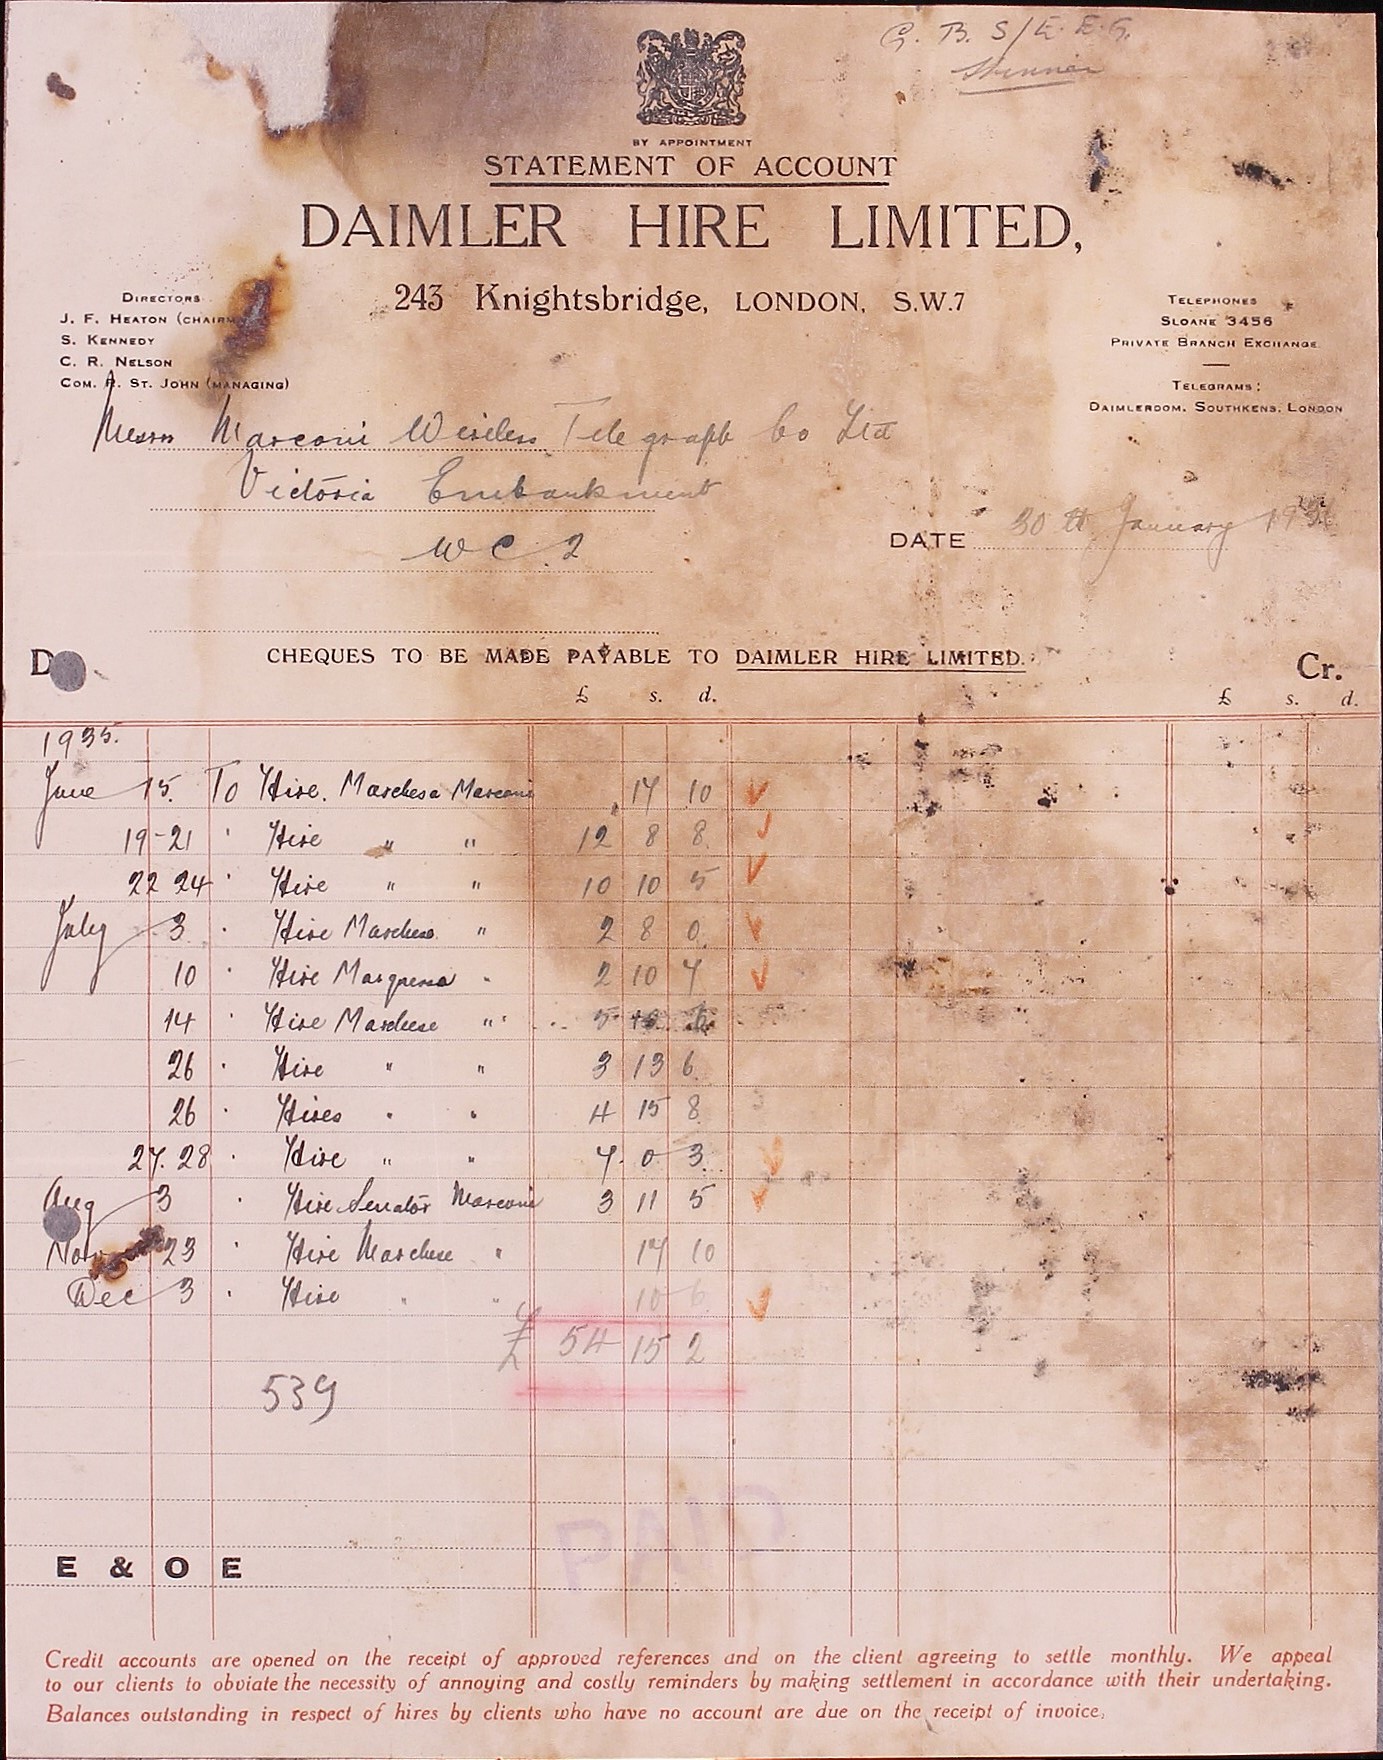 G. B. S/E. E. G.
BY APPOINTMENT
STATEMENT OF ACCOUNT
DAIMLER HIRE LIMITED,
243 Knightsbridge, LONDON, S.W.7
DIRECTORS
J. F. HEATON (CHAIRM
S. KENNEDY
C. R. NELSON
COM. R. ST. JOHN (MANAGING)
TELEPHONES
SLOANE 3456
PRIVATE BRANCH EXCHANGE
TELEGRAMS:
DAIMLERDOM, SOUTHKENS, LONDON
Messrs Marconi Wireless Telegraph Co Ltd
Victoria Embankment
W C 2
DATE 30th January 1936
D
CHEQUES TO BE MADE PAYABLE TO DAIMLER HIRE LIMITED.
Cr.
£ s. d. £ s. d.
1935.
June 15. To Hire. Marchesa Marconi 17 10
19-21 " Hire " " 12 8 8
22 24 " Hire " " 10 10 5
July 3 " Hire Marchese " 2 8 0
10 " Hire " 2 10 7
14 " Hire Marchese " 5 6
26 " Hire " " 3 13 6
26 " Hires " " 4 15 8
27. 28 " Hire " " 7 0 3
Aug 3 " Hire Senator Marconi 3 11 5
Nov 23 " Hire Marchese " 17 10
Dec 3 " Hire " " 10 6
£ 54 15 2
539
PAID
E & O E
Credit accounts are opened on the receipt of approved references and on the client agreeing to settle monthly. We appeal
to our clients to obviate the necessity of annoying and costly reminders by making settlement in accordance with their undertaking.
Balances outstanding in respect of hires by clients who have no account are due on the receipt of invoice.